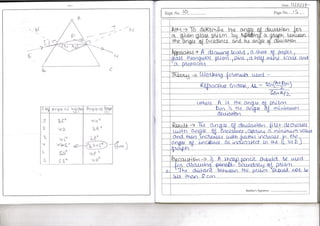 Date 11/12/23
Expt. No. 10
Page No. 15
Aim:- To determine the angle of deviation for
a given glass prism by plotting a graph between
the angle of incidence and the angle of deviation
Apparatus:- A drawing board, a sheet of paper,
glass triangular prism, pins, a half metre scale and
a protractor
Theory:- Working formula used -
Refractive index, μ = sin(A+Dm)/2
Sin A/2
where A is the angle of prism
Dm is the angle of minimum
deviation
Result:- The angle of deviation first decreases
with angle of incidence, attains a minimum value
and then increases with further increase in the
angle of incidence as indicated in the (i vs D)
graph.
Precaution:- 1. A sharp pencil should be used
for drawing boundary of prism.
2. The distance between the pins should not be
less than 8 cm
Teacher's Signature
A
N
B
C
1 35° 40°
2 40
45°
50°